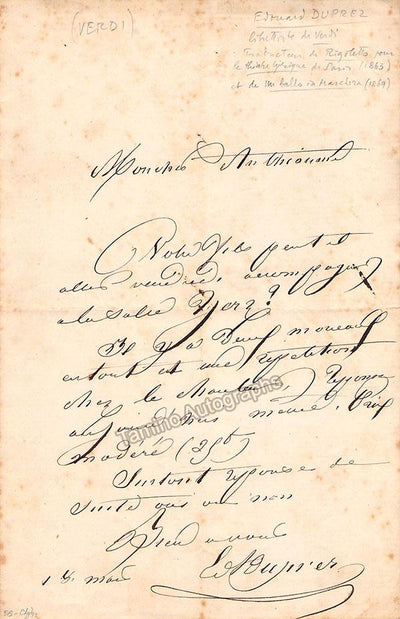 (VERDI)
Edouard DUPREZ
librettiste de Verdi
Traducteur de Rigoletto pour
le théâtre lyrique de Paris (1863)
et de Un ballo in Maschera (1869)
Mon cher Anthiome
Votre fils peut-il
aller vendredi, accompagner
a la Salle Herz?
Il y a deux morceaux
surtout et une répétition
chez le
aujourd'hui même. Prix
modéré (25f)
Surtout réponse de
suite oui ou non
Bien a vous
18 mars
Ed Duprez
Tamino Autographs